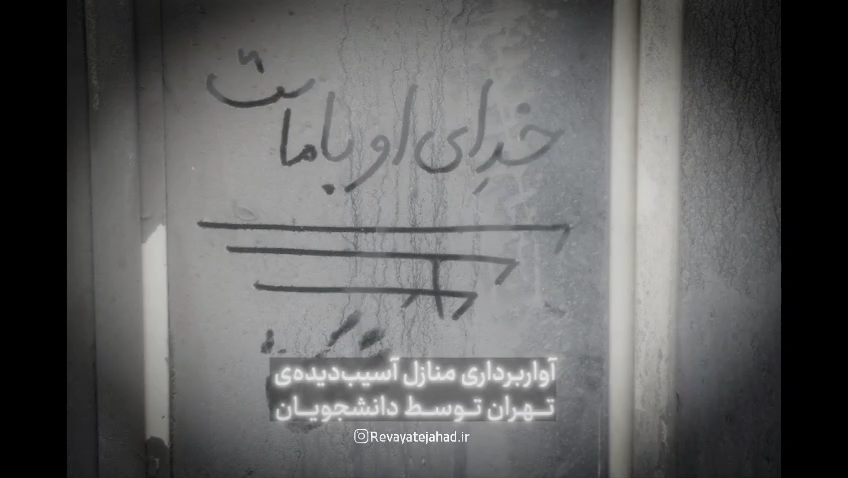 خدای او با ماست
آواربرداری منازل آسیب‌دیده‌ی
تهران توسط دانشجویان
Revayatejahad.ir